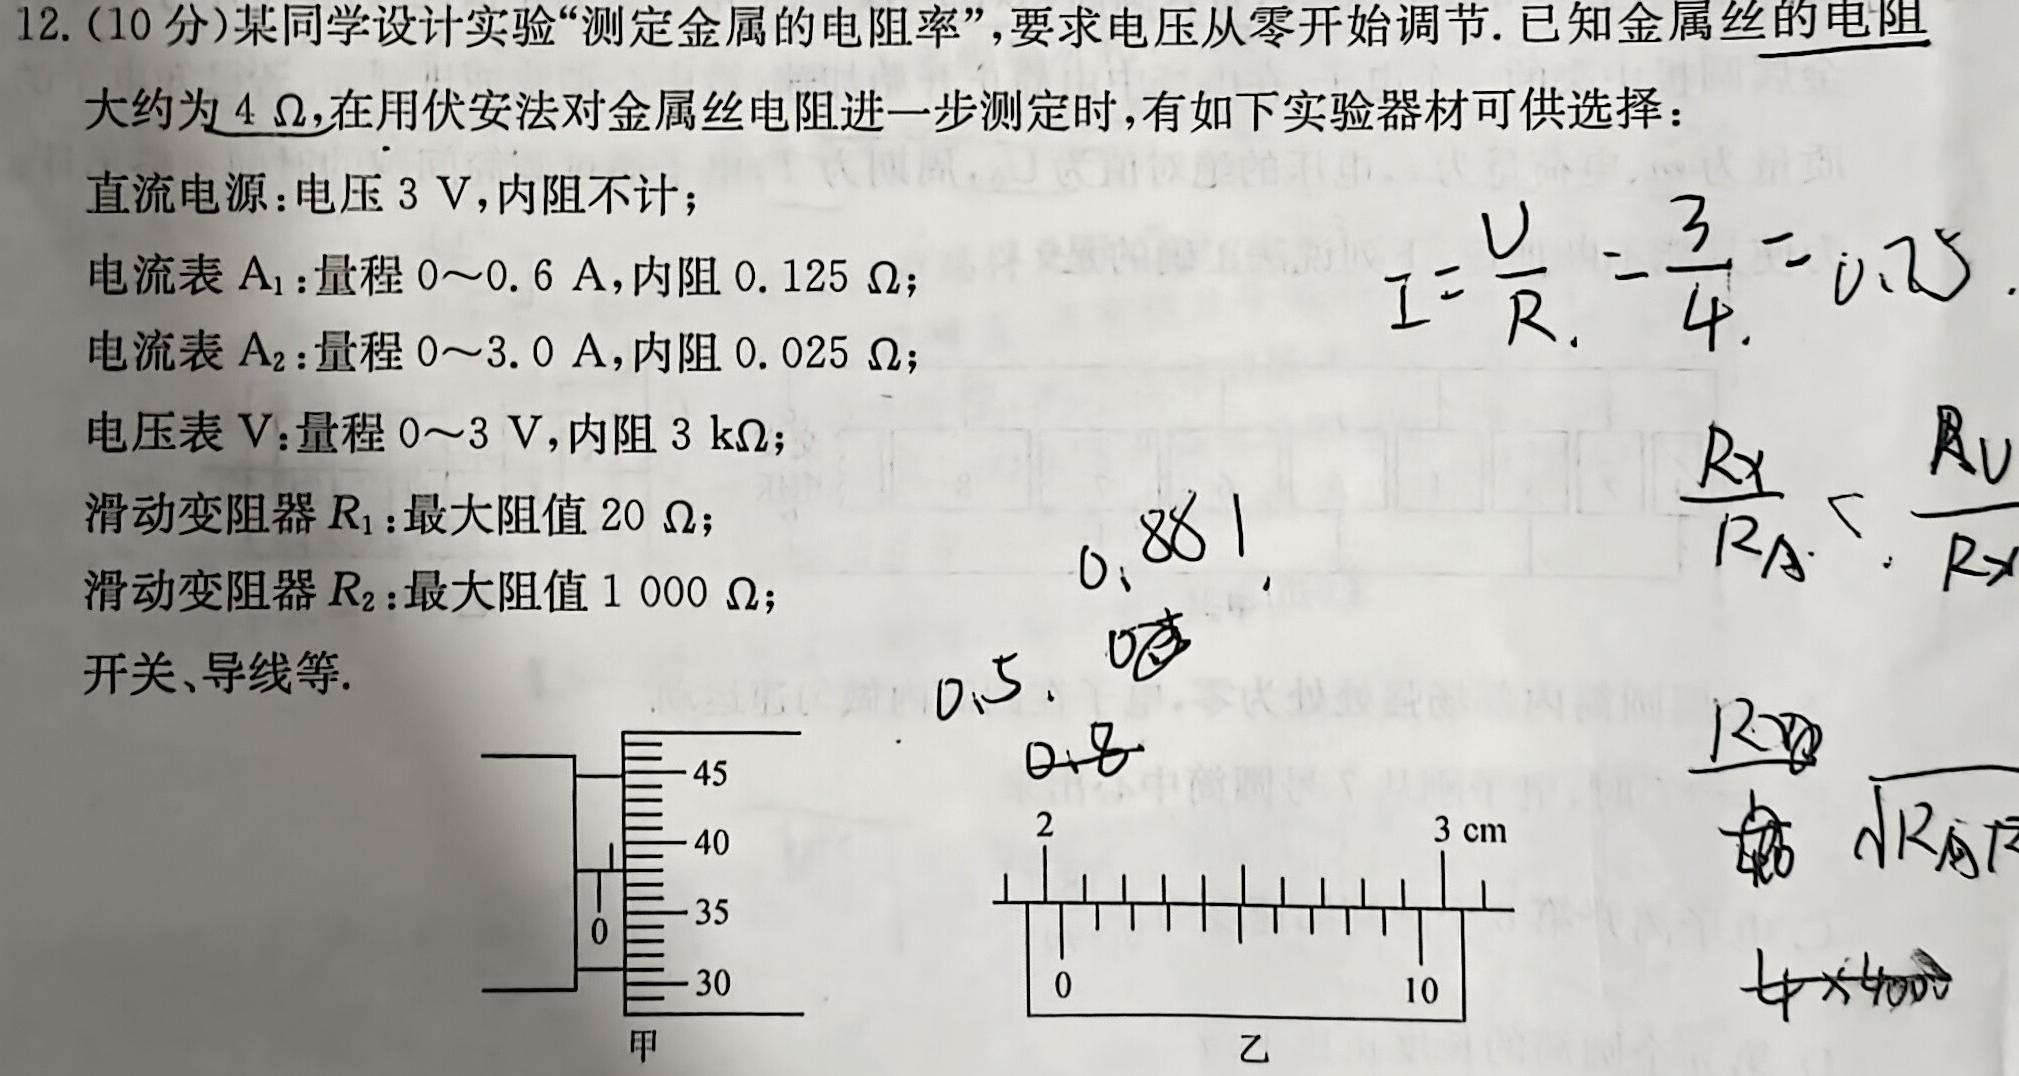 12. (10 分)某同学设计实验“测定金属的电阻率”,要求电压从零开始调节. 已知金属丝的电阻
大约为 4 Ω,在用伏安法对金属丝电阻进一步测定时,有如下实验器材可供选择:
直流电源:电压 3 V,内阻不计;
电流表 A₁:量程 0～0. 6 A,内阻 0. 125 Ω;
电流表 A₂:量程 0～3. 0 A,内阻 0. 025 Ω;
电压表 V:量程 0～3 V,内阻 3 kΩ;
滑动变阻器 R₁:最大阻值 20 Ω;
滑动变阻器 R₂:最大阻值 1 000 Ω;
开关、导线等.
I = U/R. = 3/4. = 0.75.
Rx/RA < RV/Rx
0.881.
0.5.
0.8
45
40
35
30
0
甲
2
3 cm
0
10
乙